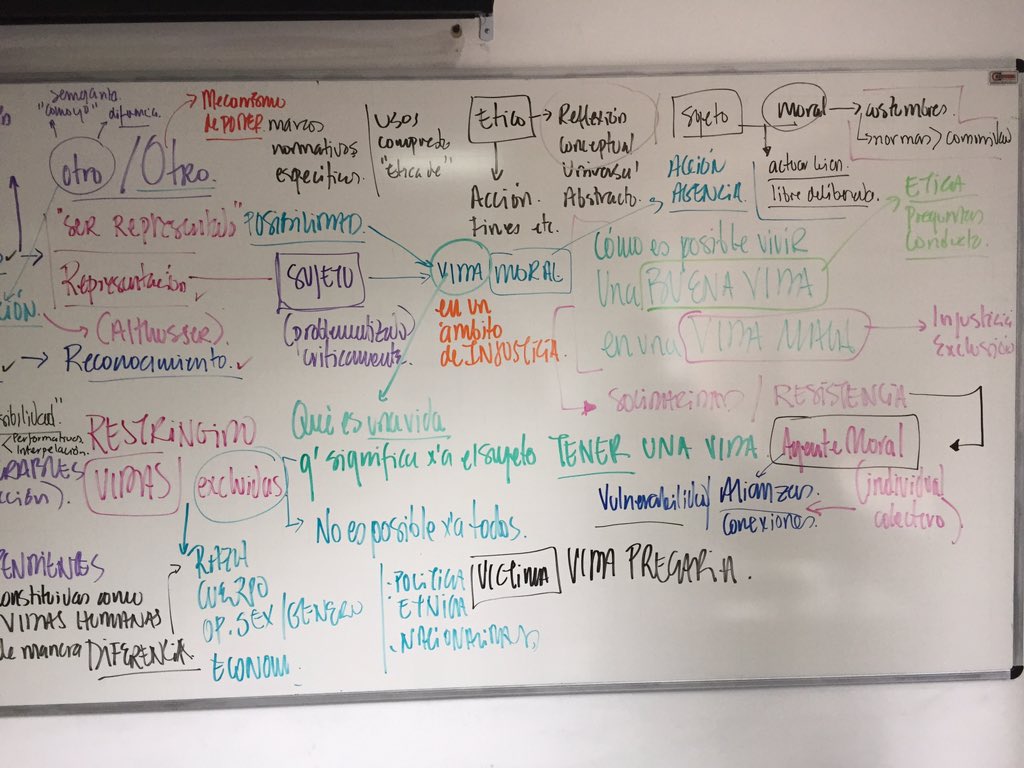 semejante
"como yo" diferencia
otro / Otro.
Mecanismo
de PODER
marcos
normativos
específicos.
USOS
compuesto
"Ética de"
Ético
Reflexión
Conceptual
Universal
Abstracto.
Acción.
Fines etc.
Sujeto
ACCIÓN
AGENCIA.
moral
costumbres
normas > comunidad
actuar bien.
libre deliberado.
ETICA
Preguntas
Conducta.
"SER Representado" POSIBILIDAD
Representación
SUJETO
(problematizado
críticamente
VIDA MORAL
en un
ámbito
de INJUSTICIA.
Cómo es posible vivir
Una BUENA VIDA
en una VIDA MALA
Injusticia
Exclusión
CIÓN
(Althusser)
Reconocimiento.
SOLIDARIDAD / RESISTENCIA
sibilidad"
< Performativos
Interpelación.
RESTRINGIDO
VIDAS excluidas
cción).
Qué es una vida
q' significa x'a el sujeto TENER UNA VIDA.
Agente Moral
(individual
colectivo)
Vulnerabilidad / Alianzas.
conexiones.
No es posible x'a todos.
ENDIENTES
onstituivas como
VIDAS HUMANAS
de manera DIFERENCIA
RAZA
CUERPO
OP. SEX / GÉNERO
ECONOM.
. POLITICA
. ETNICA
. NACIONALIDAD
VICTIMA VIDA PRECARIA.